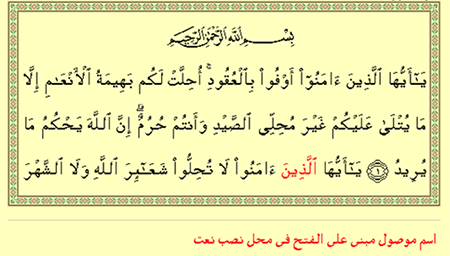 بِسْمِ ٱللَّهِ ٱلرَّحْمَٰنِ ٱلرَّحِيمِ
يَـٰٓأَيُّهَا ٱلَّذِينَ ءَامَنُوٓا۟ أَوْفُوا۟ بِٱلْعُقُودِ ۚ أُحِلَّتْ لَكُم بَهِيمَةُ ٱلْأَنْعَـٰمِ إِلَّا
مَا يُتْلَىٰ عَلَيْكُمْ غَيْرَ مُحِلِّى ٱلصَّيْدِ وَأَنتُمْ حُرُمٌ ۗ إِنَّ ٱللَّهَ يَحْكُمُ مَا
يُرِيدُ ١ يَـٰٓأَيُّهَا ٱلَّذِينَ ءَامَنُوا۟ لَا تُحِلُّوا۟ شَعَـٰٓئِرَ ٱللَّهِ وَلَا ٱلشَّهْرَ
اسم موصول مبنى على الفتح فى محل نصب نعت